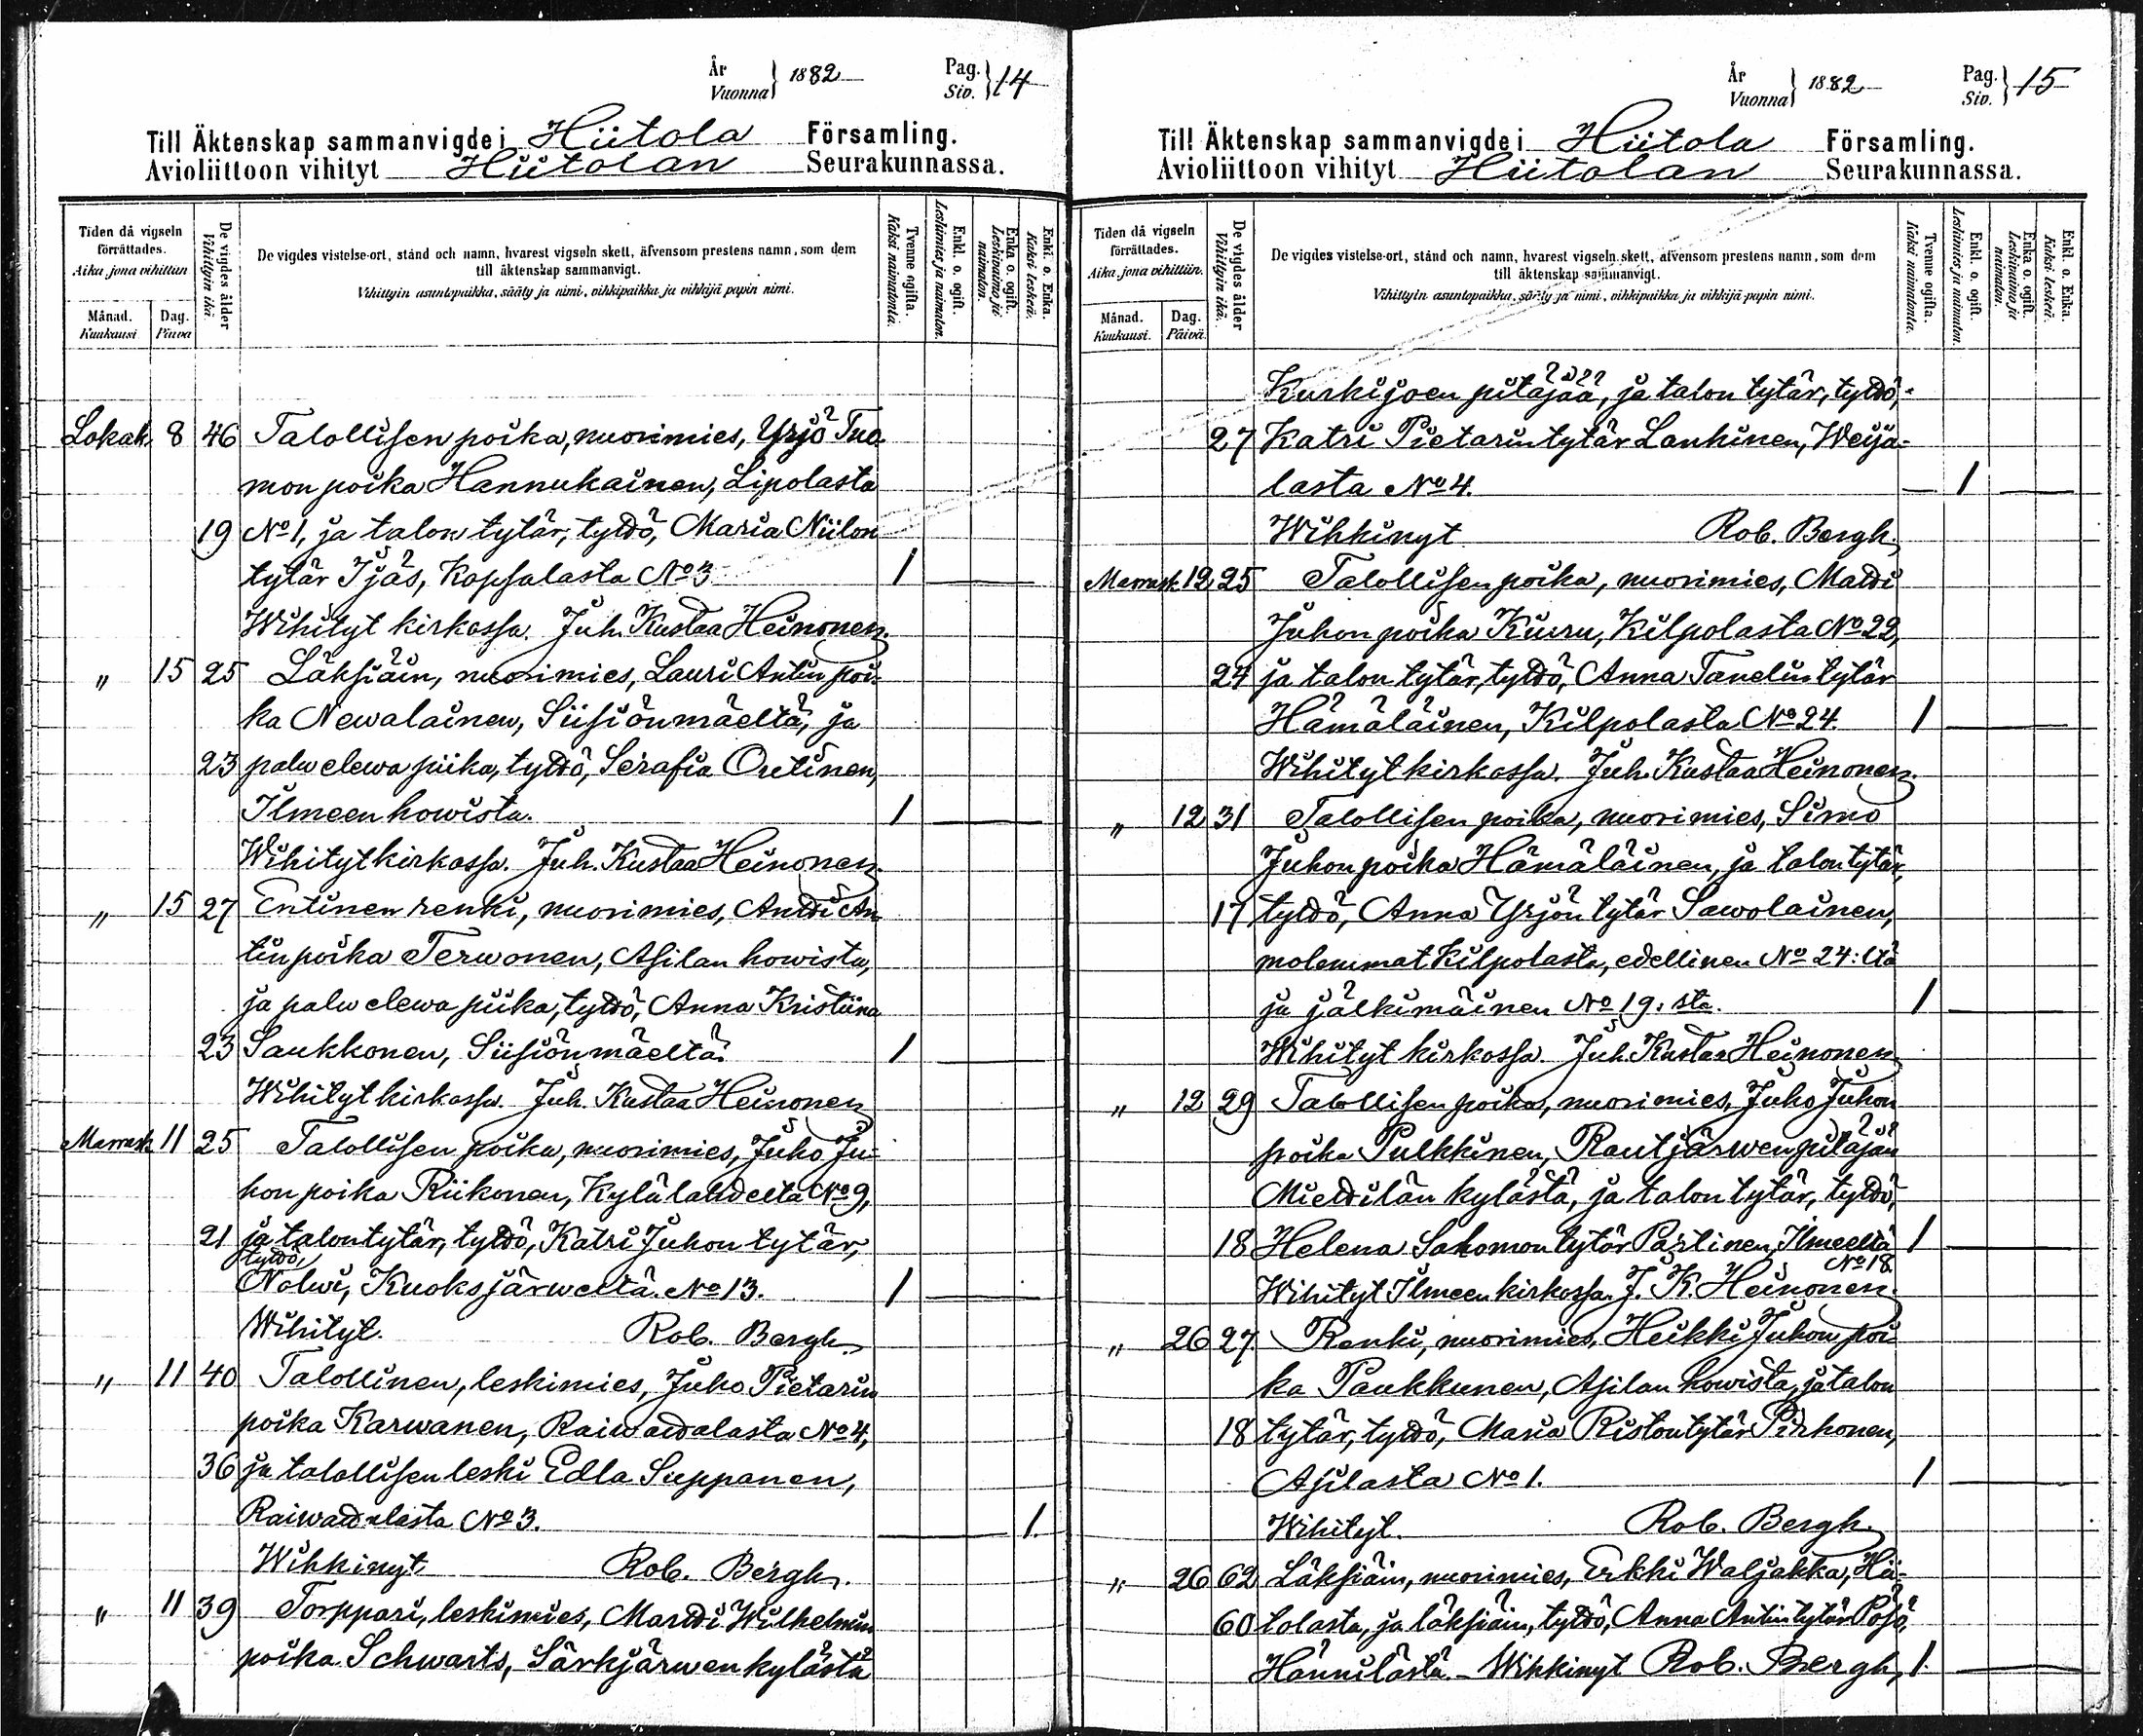 År
Vuonna } 1882
Pag.
Siv. } 14
Till Äktenskap sammanvigde i Hiitola Församling.
Avioliittoon vihityt Hiitolan Seurakunnassa.
Tiden då vigseln förrättades.
Aika, jona vihittiin
Månad.
Kuukausi
Dag.
Päivä
De vigdes ålder
Vihittyin ikä
De vigdes vistelse-ort, stånd och namn, hvarest vigseln skett, äfvensom prestens namn, som dem
till äktenskap sammanvigt.
Vihittyin asuntopaikka, sääty ja nimi, vihkipaikka ja vihkijä papin nimi.
Tvenne ogifta.
Kaksi naimatonta.
Enkl. o. ogift.
Leskimies ja naimaton.
Enka o. ogift.
Leskivaimo ja naimaton.
Enkl. o. Enka.
Kaksi leskeä.
Lokak. 8 46 Talollisen poika, nuorimies, Yrjö Tuo-
mon poika Hannukainen, Lipolasta
19 No 1, ja talon tytär, tyttö, Maria Niilon
tytär Ijäs, Kopsalasta No 3 1
Wihityt kirkossa. Juh. Kustaa Heinonen.
" 15 25 Läksiäin, nuorimies, Lauri Antin poi-
ka Newalainen, Siisiönmäeltä, ja
23 palwelewa piika, tyttö, Serafia Outinen,
Ilmeen howista. 1
Wihityt kirkossa. Juh. Kustaa Heinonen.
" 15 27 Entinen renki, nuorimies, Antti An
tin poika Terwonen, Asilan howista,
ja palwelewa piika, tyttö, Anna Kristiina
23 Saukkonen, Siisiönmäeltä. 1
Wihityt kirkossa. Juh. Kustaa Heinonen
Marrask. 11 25 Talollisen poika, nuorimies, Juho Ju-
hon poika Riikonen, Kylälahdelta No 9,
21 ja talon tytär, tyttö, Katri Juhon tytär,
tyttö,
Nolwi, Kuoksjärweltä No 13. 1
Wihityt. Rob. Bergh.
" 11 40 Talollinen, leskimies, Juho Pietarin
poika Karwanen, Raiwattalasta No 4,
36 ja talollisen leski Edla Suppanen,
Raiwattalasta No 3. 1.
Wihkinyt Rob. Bergh.
" 11 39 Torppari, leskimies, Martti Wilhelmin
poika Schwarts, Särkjärwen kylästä
År
Vuonna } 1882
Pag.
Siv. } 15
Till Äktenskap sammanvigde i Hiitola Församling.
Avioliittoon vihityt Hiitolan Seurakunnassa.
Tiden då vigseln förrättades.
Aika, jona vihittiin.
Månad.
Kuukausi.
Dag.
Päivä.
De vigdes ålder
Vihittyin ikä.
De vigdes vistelse-ort, stånd och namn, hvarest vigseln skett, äfvensom prestens namn, som dem
till äktenskap sammanvigt.
Vihittyin asuntopaikka, sääty ja nimi, vihkipaikka ja vihkijä papin nimi.
Tvenne ogifta.
Kaksi naimatonta.
Enkl. o. ogift.
Leskimies ja naimaton.
Enka o. ogift.
Leskivaimo ja naimaton.
Enkl. o. Enka.
Kaksi leskeä.
Kurkijoen pitäjää, ja talon tytär, tyttö,
27 Katri Pietarin tytär Lankinen, Weija-
lasta No 4. 1
Wihkinyt Rob. Bergh.
Marrask. 12 25 Talollisen poika, nuorimies, Matti
Juhon poika Kiuru, Kilpolasta No 22,
24 ja talon tytär, tyttö, Anna Tanelin tytär
Hämäläinen, Kilpolasta No 24. 1
Wihityt kirkossa. Juh. Kustaa Heinonen.
" 12 31 Talollisen poika, nuorimies, Simo
Juhon poika Hämäläinen, ja talon tytär,
17 tyttö, Anna Yrjön tytär Sawolainen,
molemmat Kilpolasta, edellinen No 24:ltä
ja jälkimäinen No 19:sta. 1
Wihityt kirkossa. Juh. Kustaa Heinonen
" 12 29 Talollisen poika, nuorimies, Juho Juhon
poika Pulkkinen, Rautjärwen pitäjän
Miettilän kylästä, ja talon tytär, tyttö,
18 Helena Salomon tytär Partinen, Ilmeeltä 1
No 18.
Wihityt Ilmeen kirkossa J. K. Heinonen.
" 26 27. Renki, nuorimies, Heikki Juhon poi-
ka Paukkunen, Asilan howista, ja talon
18 tytär, tyttö, Maria Riston tytär Pirhonen,
Asilasta No 1. 1
Wihityt. Rob. Bergh.
" 26 62 Läksiäin, nuorimies, Erkki Waljakka, Hii-
60 tolasta, ja läksiäin, tyttö, Anna Antin tytär Pösö,
Hännilästä. - Wihkinyt Rob. Bergh, 1.